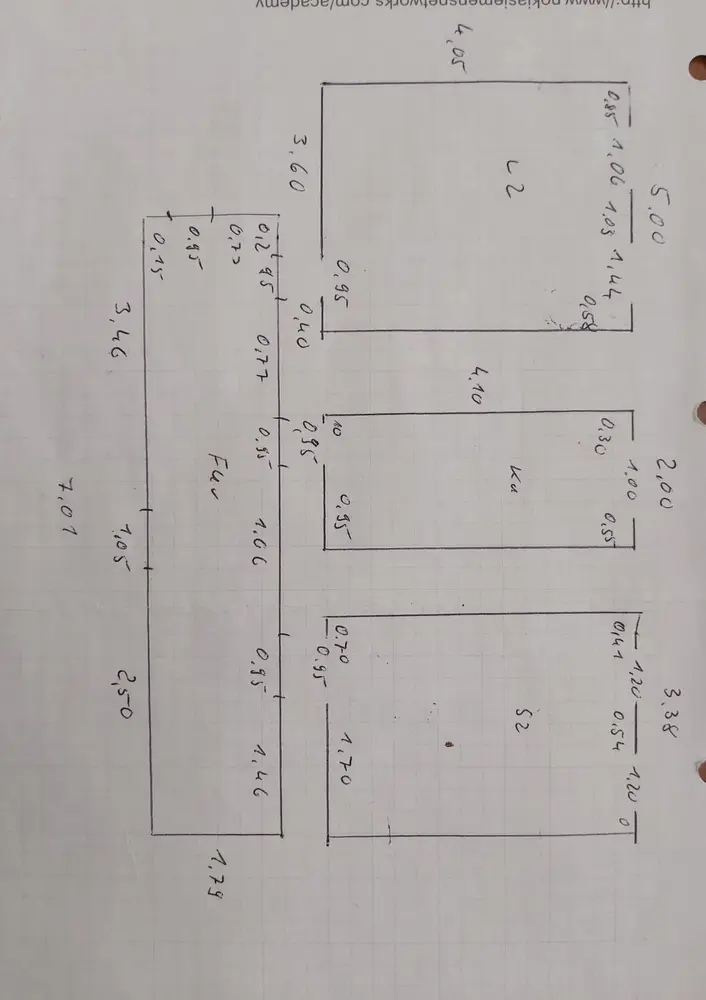 5.00 2,00 3,38
0,85 1,06 1,03 1,44 0,58 0,30 1.00 0,55 0,41 1,20 0,54 1,20 0
L2 Ku S2
4,05 4.10
0,95 10 0,95 0.70 1,70
3,60 0,40 0,95 0.95
0,2 95 0,77 0,95 1,06 0,95 1,46
0,77 Flur 1,79
0,95
0,15
3,46 1,05 2,50
7,01
http://www.nokiasiemensnetworks.com/academy